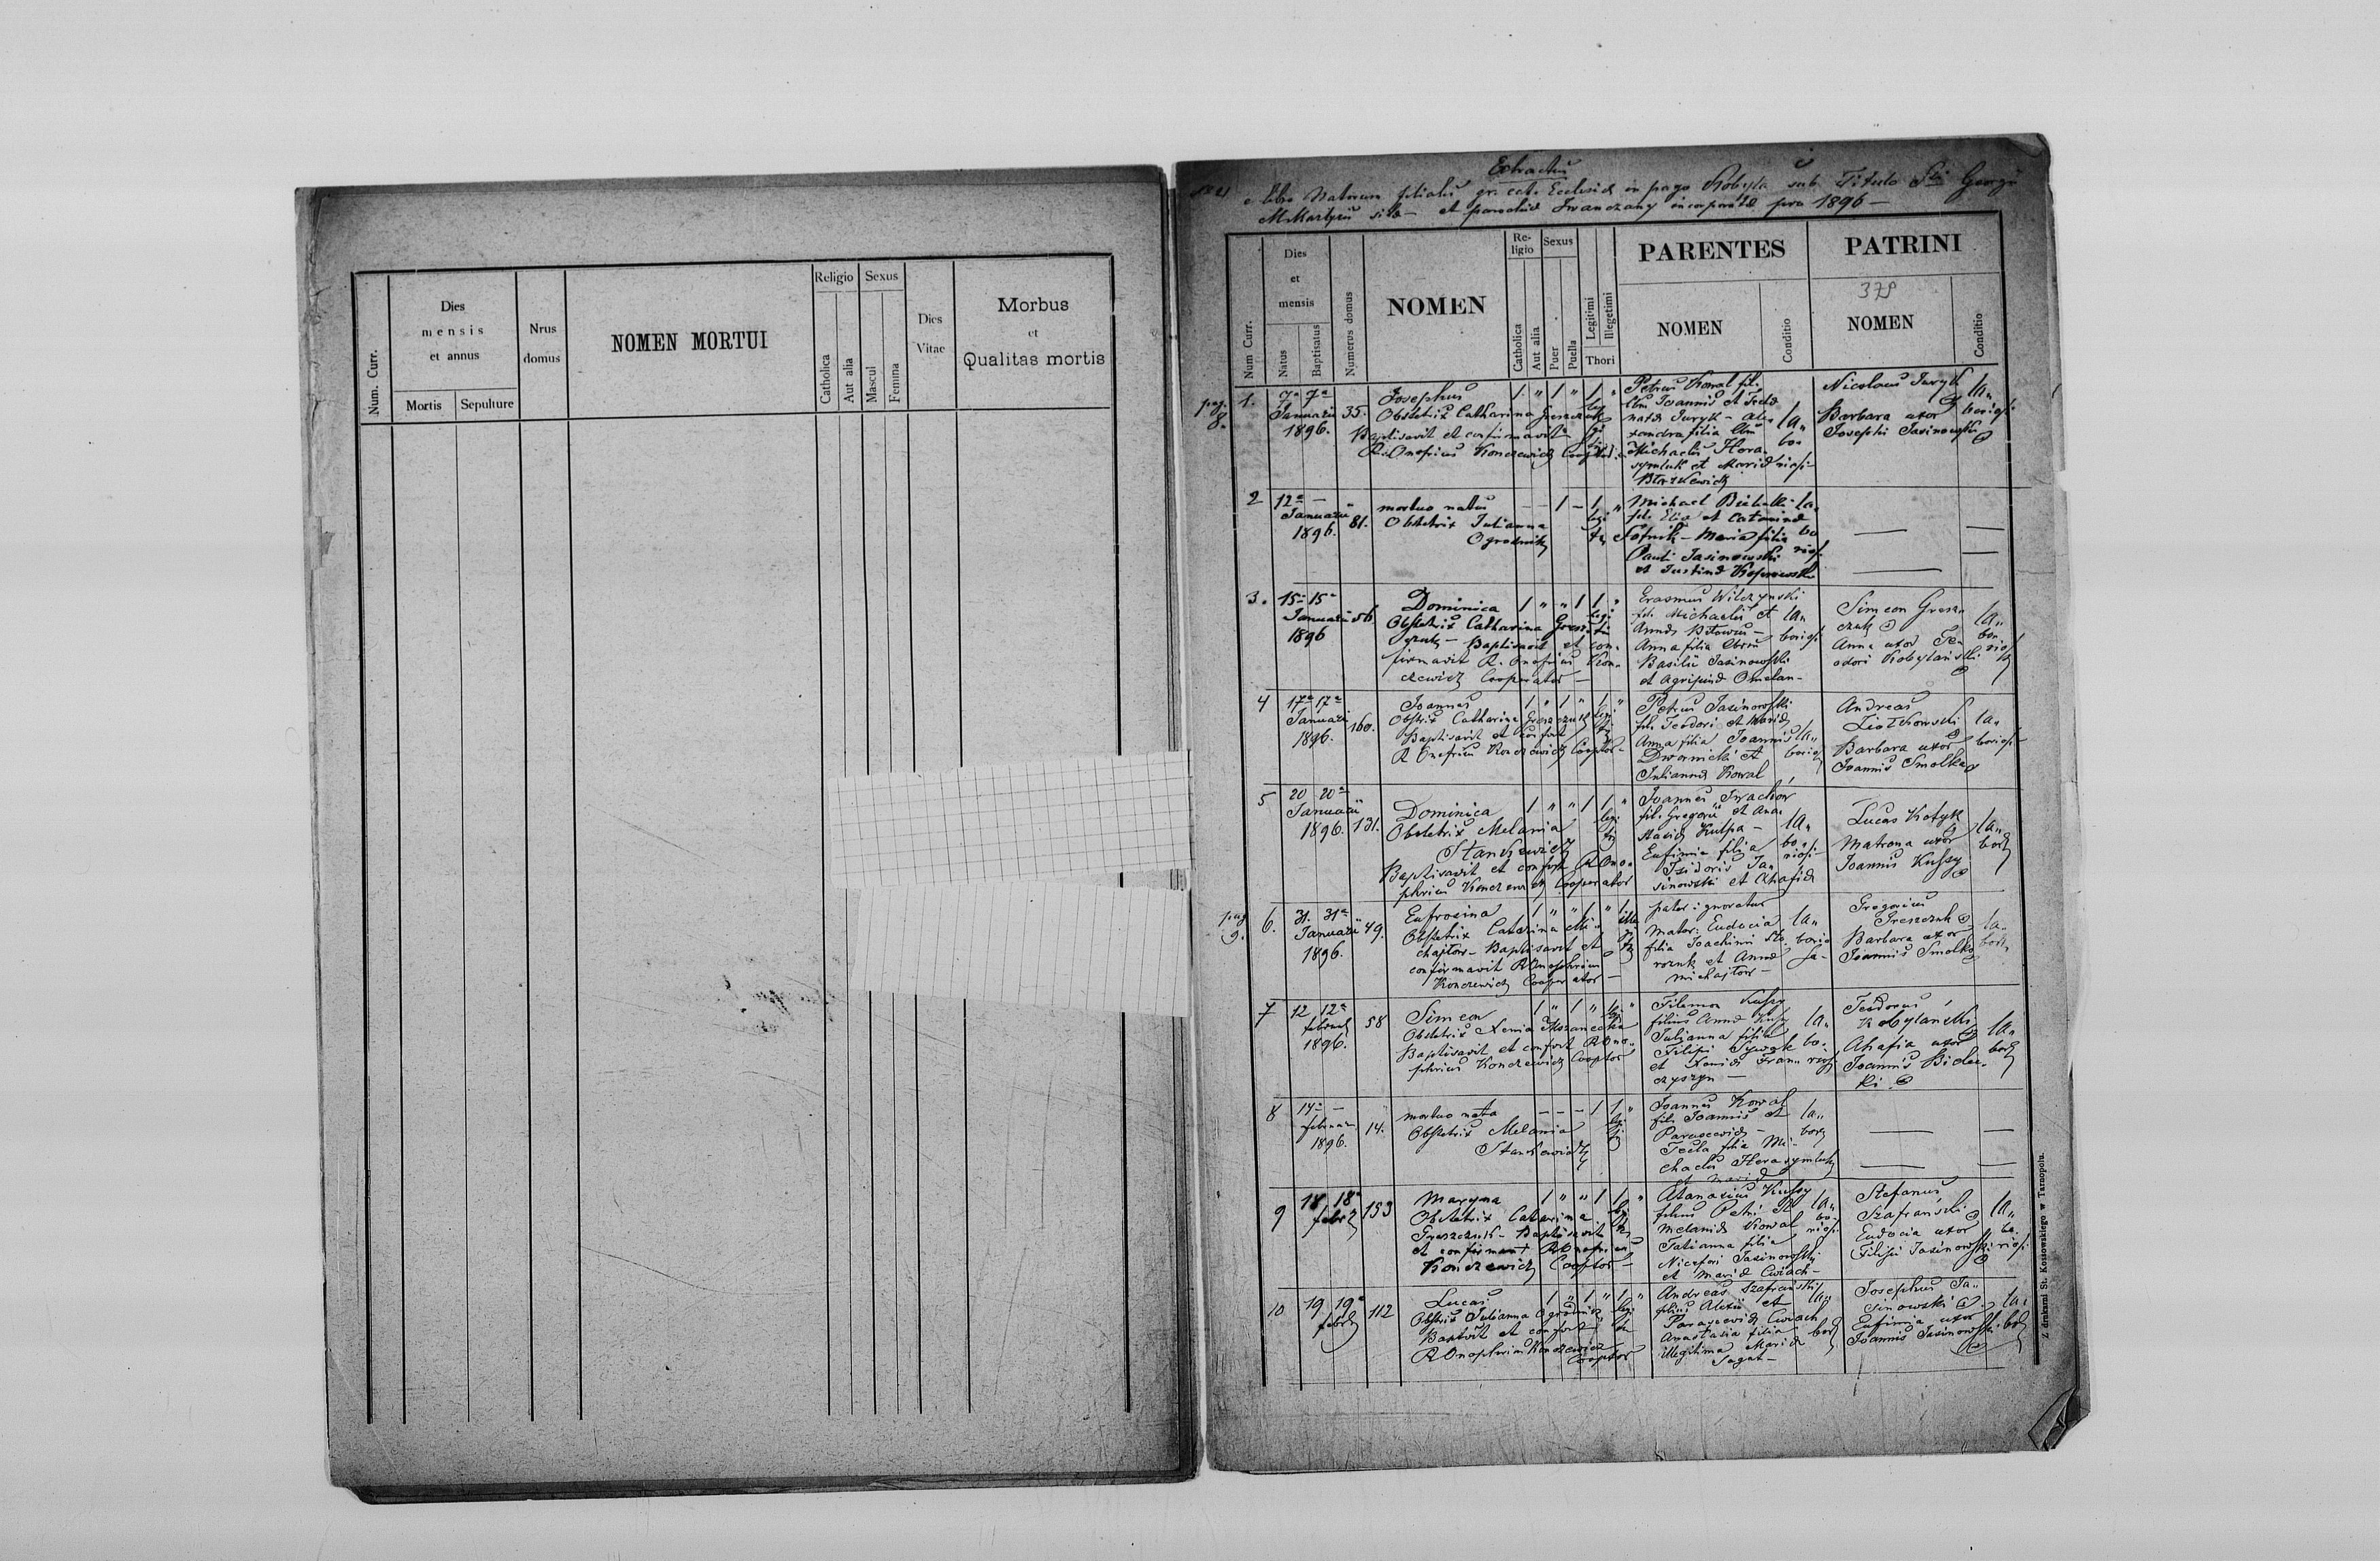 Num. Curr.
Dies
mensis
et annus
Mortis
Sepulture
Nrus
domus
NOMEN MORTUI
Religio
Catholica
Aut alia
Sexus
Mascul
Femina
Dies
Vitae
Morbus
et
Qualitas mortis
Extractus
e libro Natorum filialis gr. cat. Ecclesiæ in pago Kobyla sub Titulo Sti Georgii
M.Martyris sitæ – et parochiæ Iwanczany incorporatæ pro 1896 –
Num Curr.
Dies
et
mensis
Natus
Baptisatus
Numerus domus
NOMEN
Re-
ligio
Catholica
Aut alia
Sexus
Puer
Puella
Legitimi
Illegetimi
Thori
PARENTES
NOMEN
Conditio
PATRINI
379
NOMEN
Conditio
pag.
8.
1.
7a 7a
Januarii
1896.
35.
Josephus
Obstetrix Catharina Greszczuk
Baptisavit et confirmavit
R. Onofrius Konczewicz
1 " 1 " 1 "
Petrus Kowal fil.
Joannis et Teclæ
natæ Juryk – Ale-
xandra filia
Michaelis Hera-
symluk et Mariæ
la-
bo-
riosi
Nicolaus Juryk
Barbara uxor
Josephi Jasinowski
la-
boriosi
2
12a –
Januarii
1896.
81.
mortuo natus
Obstetrix Julianna
Ogrodnik
– – 1 – 1 "
Michael
fil. Eliæ et Catarinæ
Sotnik – Maria filia
Pauli Jasinowski
et Justinæ
la-
bo
riosi
3.
15a 15a
Januarii
1896
56
Dominica
Obstetrix Catharina Gresz-
czuk – Baptisavit et con-
firmavit R. Onofrius Kon-
czewicz Cooperator –
1 " " 1 1 "
Erasmus Wilczynski
fil. Michaelis et
Annæ
Anna filia
Basilii Jasinowski
et Agripinæ Omelan –
la-
boriosi
Simeon Gresz-
czuk
Anna uxor Te-
odori Kobylański
la-
bo-
riosi
4
17a 17a
Januarii
1896.
160.
Joannes
Obstetrix Catharina Greszczuk
Baptisavit et
R Onofrius Konczewicz
1 " 1 " 1 "
Petrus Jasinowski
fil. Teodori et Mariæ
Anna filia Joannis
Dwornicki et
Juliannæ Kowal
la-
boriosi
Andreas
Ziółkowski
Barbara uxor
Joannis Smolka
la-
boriosi
5
20 20a
Januarii
1896.
131.
Dominica
Obstetrix Melania
Stankewicz
Baptisavit et R Ono-
phrius Konczewicz Cooperator
1 " " 1 1 "
Joannes Iwachów
fil. Gregorii et Ana-
stasiæ Kulpa –
Eufimia filia
Isidoris Ja-
sinowski et Ahafiæ
la-
bo-
riosi
Lucas Kotyk
Matrona uxor
Joannis Kuhsy
la-
pag
9.
6.
31. 31a
Januarii
1896.
49.
Eufrosina
Obstetrix Catarina Mi-
chajłow – Baptisavit et
confirmavit R Onophrius
Konczewicz Cooperator –
1 " " 1 " 1
pater: ignoratur
mater: Eudocia
filia Joachimi
et Annæ
Michajłow –
la-
borio
sa –
Gregorius
Greszczuk
Barbara uxor
Joannis Smolka
la-
7
12 12a
1896.
58
Simeon
Obstetrix Xenia
Baptisavit et R Ono-
phrius Konczewicz
1 " 1 " 1 "
Filemon Kuhsy
filius Annæ
Julianna filia
Filipi
et Xeniæ Fran-
czyszyn –
la-
bo-
riosi
Teodorus
Kobylański
Ahafia uxor
Joannis Bielec-
ki.
la-
8
14a –
1896.
14.
mortuo nata
Obstetrix Melania
Stankewicz
– – – 1 1 "
Joannes Kowal
fil. Joannis et
Parascewiæ –
Tecla filia Mi-
chaelis Herasymluk
et Mariæ
la-
9
18 18a
153
Maryna
Obstetrix Catarina
Greszczuk – Baptisavit
et confirmavit R Onofrius
Konczewicz
1 " " 1 1 "
Atanasius Kuhsy
filius Petri et
Melaniæ Kowal
Tatianna filia
Nicefori Jasinowski
et Mariæ Cwiach –
la-
bo-
riosi
Stefanus
Szafrański
Eudocia uxor
Filipi Jasinowski
la-
bo-
riosi
10
19 19a
112
Lucas
Julianna Ogrodnik
et
R Onophrius Konczewicz
1 " 1 " 1 "
Andreas Szafrański
filius Alexii et
Parascewiæ Cwiach
Anastasia filia
illegitima Mariæ
la-
Josephus Ja-
sinowski
Eufimia uxor
Joannis Jasinowski
la-
Z drukarni St. Kossowskiego w Tarnopolu.